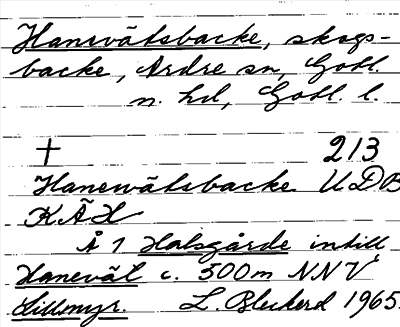 Hanevätsbacke, skogs-
backe, Ardre sn, Gotl.
n. hd, Gotl. l.
+ 213
Hanewätsbacke UDB
KÄH
Å 1 Halsgårde intill
Hanevät c. 500m NNV
Lillmyr. L. Bleckerd 1965.